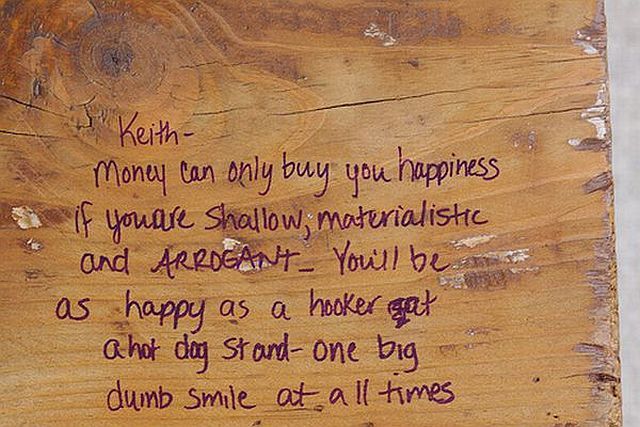 Keith-
Money can only buy you happiness
if you are shallow, materialistic
and ARROGANT- You'll be
as happy as a hooker at
a hot dog stand- one big
dumb smile at all times